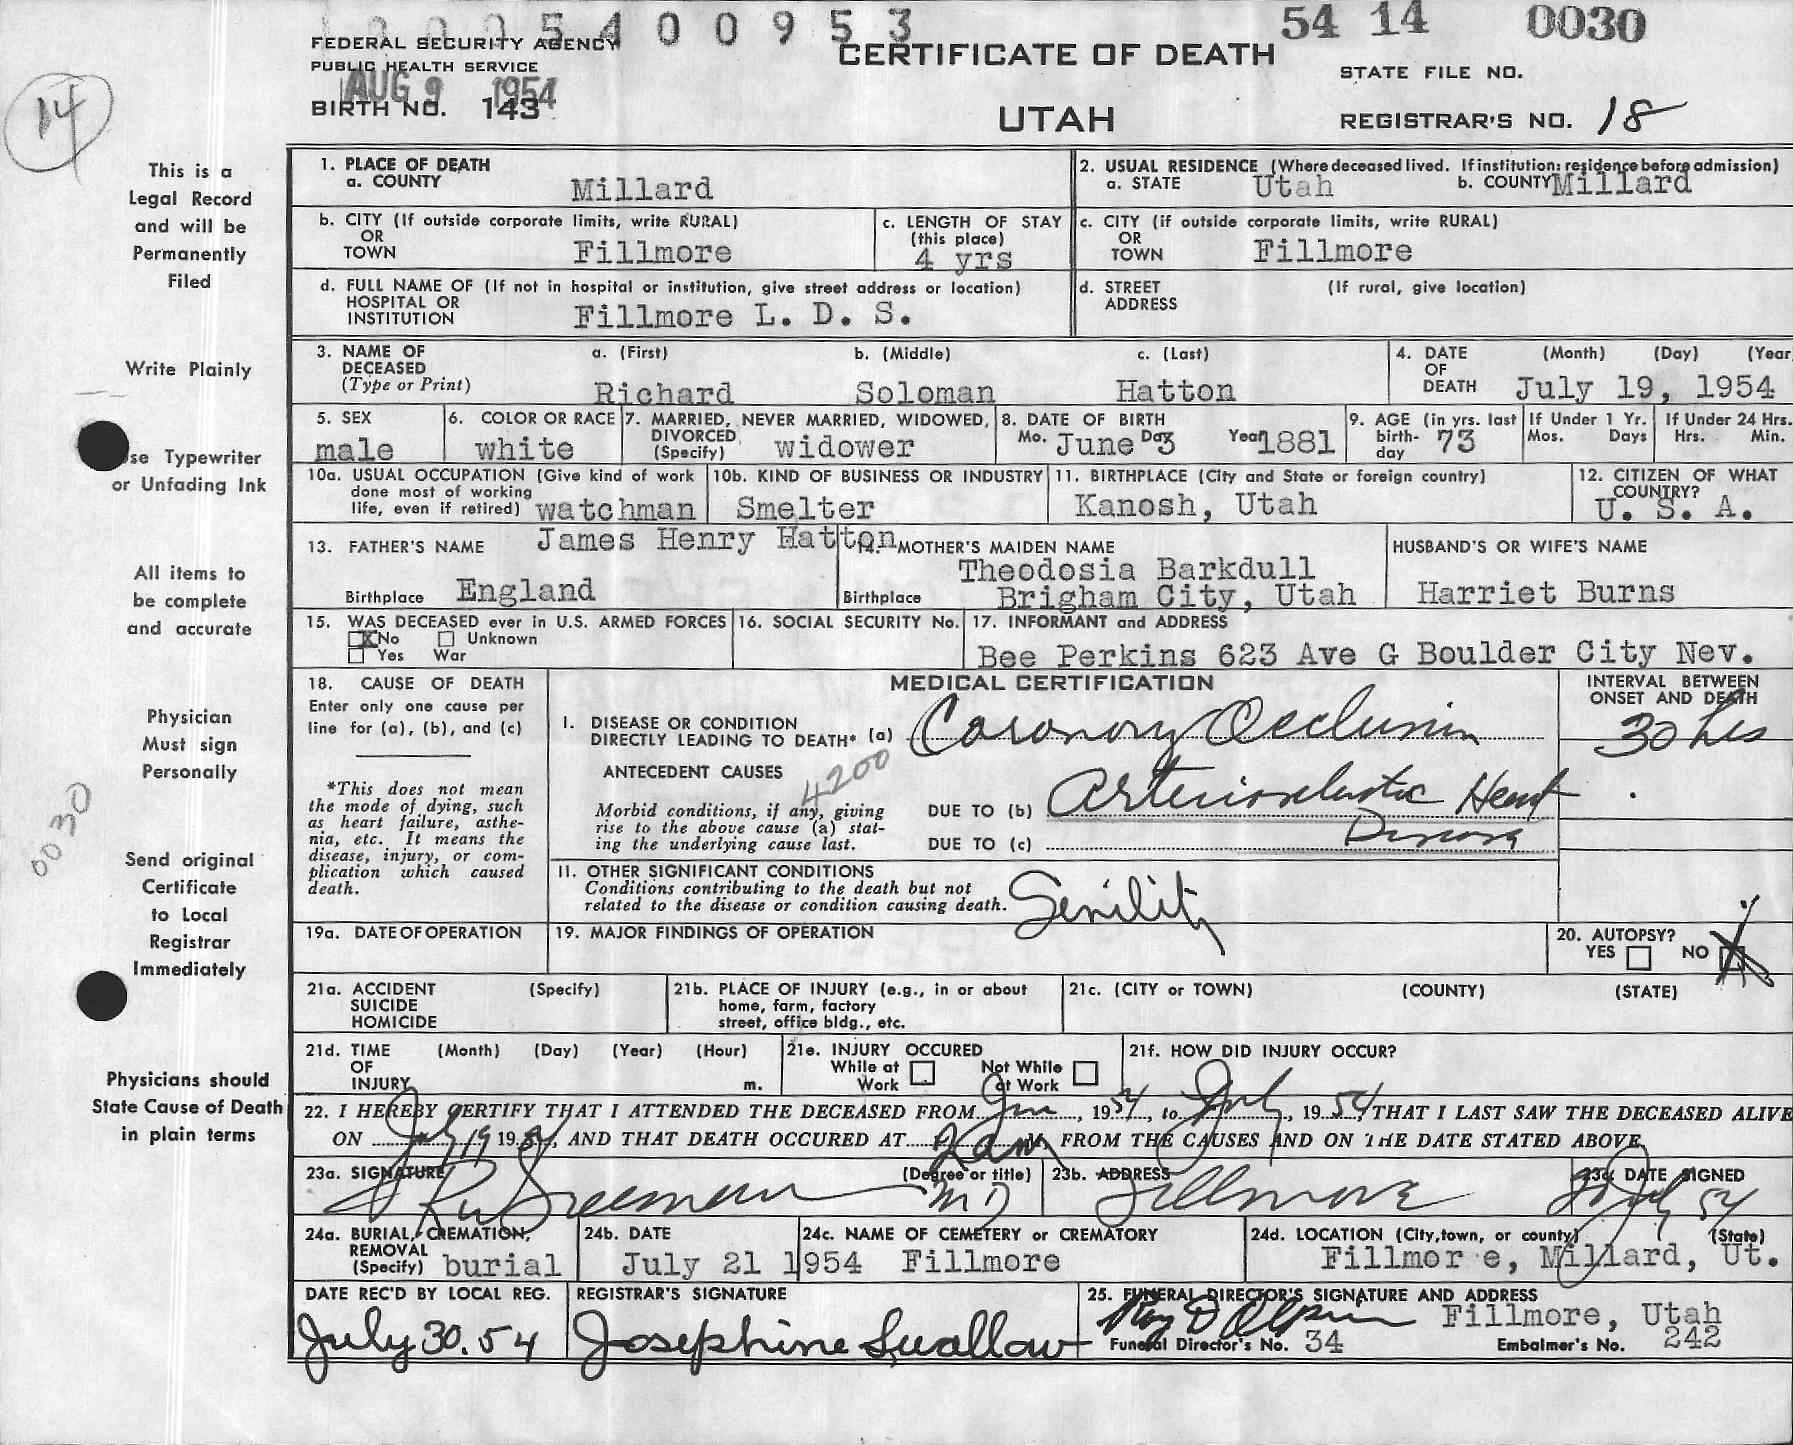 1005400953
54 14 0030
FEDERAL SECURITY AGENCY
PUBLIC HEALTH SERVICE
CERTIFICATE OF DEATH
STATE FILE NO.
AUG 9 1954
BIRTH NO. 143
UTAH
REGISTRAR'S NO. 18
14
This is a
Legal Record
and will be
Permanently
Filed
Write Plainly
se Typewriter
or Unfading Ink
All items to
be complete
and accurate
Physician
Must sign
Personally
0030
Send original
Certificate
to Local
Registrar
Immediately
Physicians should
State Cause of Death
in plain terms
1. PLACE OF DEATH
a. COUNTY Millard
2. USUAL RESIDENCE (Where deceased lived. If institution: residence before admission)
a. STATE Utah b. COUNTY Millard
b. CITY (If outside corporate limits, write RURAL)
OR
TOWN Fillmore
c. LENGTH OF STAY
(this place)
4 yrs
c. CITY (if outside corporate limits, write RURAL)
OR
TOWN Fillmore
d. FULL NAME OF (If not in hospital or institution, give street address or location)
HOSPITAL OR
INSTITUTION Fillmore L. D. S.
d. STREET (If rural, give location)
ADDRESS
3. NAME OF a. (First) b. (Middle) c. (Last)
DECEASED
(Type or Print) Richard Soloman Hatton
4. DATE (Month) (Day) (Year
OF
DEATH July 19, 1954
5. SEX
male
6. COLOR OR RACE
white
7. MARRIED, NEVER MARRIED, WIDOWED,
DIVORCED
(Specify) widower
8. DATE OF BIRTH
Mo. June Day 3 Year 1881
9. AGE (in yrs. last
birth-
day 73
If Under 1 Yr.
Mos. Days
If Under 24 Hrs.
Hrs. Min.
10a. USUAL OCCUPATION (Give kind of work
done most of working
life, even if retired) watchman
10b. KIND OF BUSINESS OR INDUSTRY
Smelter
11. BIRTHPLACE (City and State or foreign country)
Kanosh, Utah
12. CITIZEN OF WHAT
COUNTRY?
U. S. A.
13. FATHER'S NAME James Henry Hatton
Birthplace England
14. MOTHER'S MAIDEN NAME
Theodosia Barkdull
Birthplace Brigham City, Utah
HUSBAND'S OR WIFE'S NAME
Harriet Burns
15. WAS DECEASED ever in U.S. ARMED FORCES
X No Unknown
Yes War
16. SOCIAL SECURITY No.
17. INFORMANT and ADDRESS
Bee Perkins 623 Ave G Boulder City Nev.
18. CAUSE OF DEATH
Enter only one cause per
line for (a), (b), and (c)
*This does not mean
the mode of dying, such
as heart failure, asthe-
nia, etc. It means the
disease, injury, or com-
plication which caused
death.
MEDICAL CERTIFICATION
INTERVAL BETWEEN
ONSET AND DEATH
I. DISEASE OR CONDITION
DIRECTLY LEADING TO DEATH* (a) Coronory Occlusion
30 hrs
ANTECEDENT CAUSES 4200
Morbid conditions, if any, giving
rise to the above cause (a) stat-
ing the underlying cause last.
DUE TO (b) Arteriosclerotic Heart
DUE TO (c) Disease
11. OTHER SIGNIFICANT CONDITIONS
Conditions contributing to the death but not
related to the disease or condition causing death. Senility
19a. DATE OF OPERATION
19. MAJOR FINDINGS OF OPERATION
20. AUTOPSY?
YES NO X
21a. ACCIDENT (Specify)
SUICIDE
HOMICIDE
21b. PLACE OF INJURY (e.g., in or about
home, farm, factory
street, office bldg., etc.
21c. (CITY or TOWN) (COUNTY) (STATE)
21d. TIME (Month) (Day) (Year) (Hour)
OF
INJURY m.
21e. INJURY OCCURED
While at Work Not While at Work
21f. HOW DID INJURY OCCUR?
22. I HEREBY CERTIFY THAT I ATTENDED THE DECEASED FROM Jan, 1954, to July, 1954 THAT I LAST SAW THE DECEASED ALIVE
ON July 19 1954, AND THAT DEATH OCCURED AT 2 am M, FROM THE CAUSES AND ON THE DATE STATED ABOVE.
23a. SIGNATURE (Degree or title) MD
23b. ADDRESS Fillmore
23c. DATE SIGNED 20 July 54
24a. BURIAL, CREMATION,
REMOVAL
(Specify) burial
24b. DATE
July 21 1954
24c. NAME OF CEMETERY or CREMATORY
Fillmore
24d. LOCATION (City, town, or county) (State)
Fillmor e, Millard, Ut.
DATE REC'D BY LOCAL REG.
July 30. 54
REGISTRAR'S SIGNATURE
Josephine Swallow
25. FUNERAL DIRECTOR'S SIGNATURE AND ADDRESS
Fillmore, Utah
Funeral Director's No. 34 Embalmer's No. 242